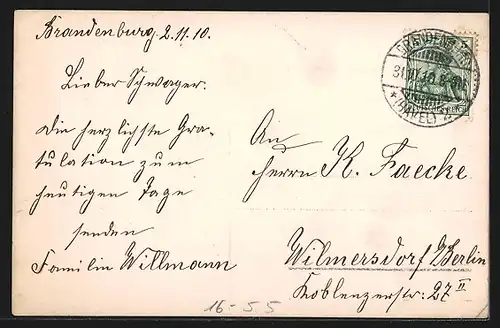 Brandenburg 2.11.10.
Lieber Schwager.
Die herzlichste Gra-
tulation zum
heutigen Tage
senden
Familie Willmann
An
Herrn K. Faecke
Wilmersdorf b/Berlin
Koblenzerstr: 27 II
(HAVEL)
16-55